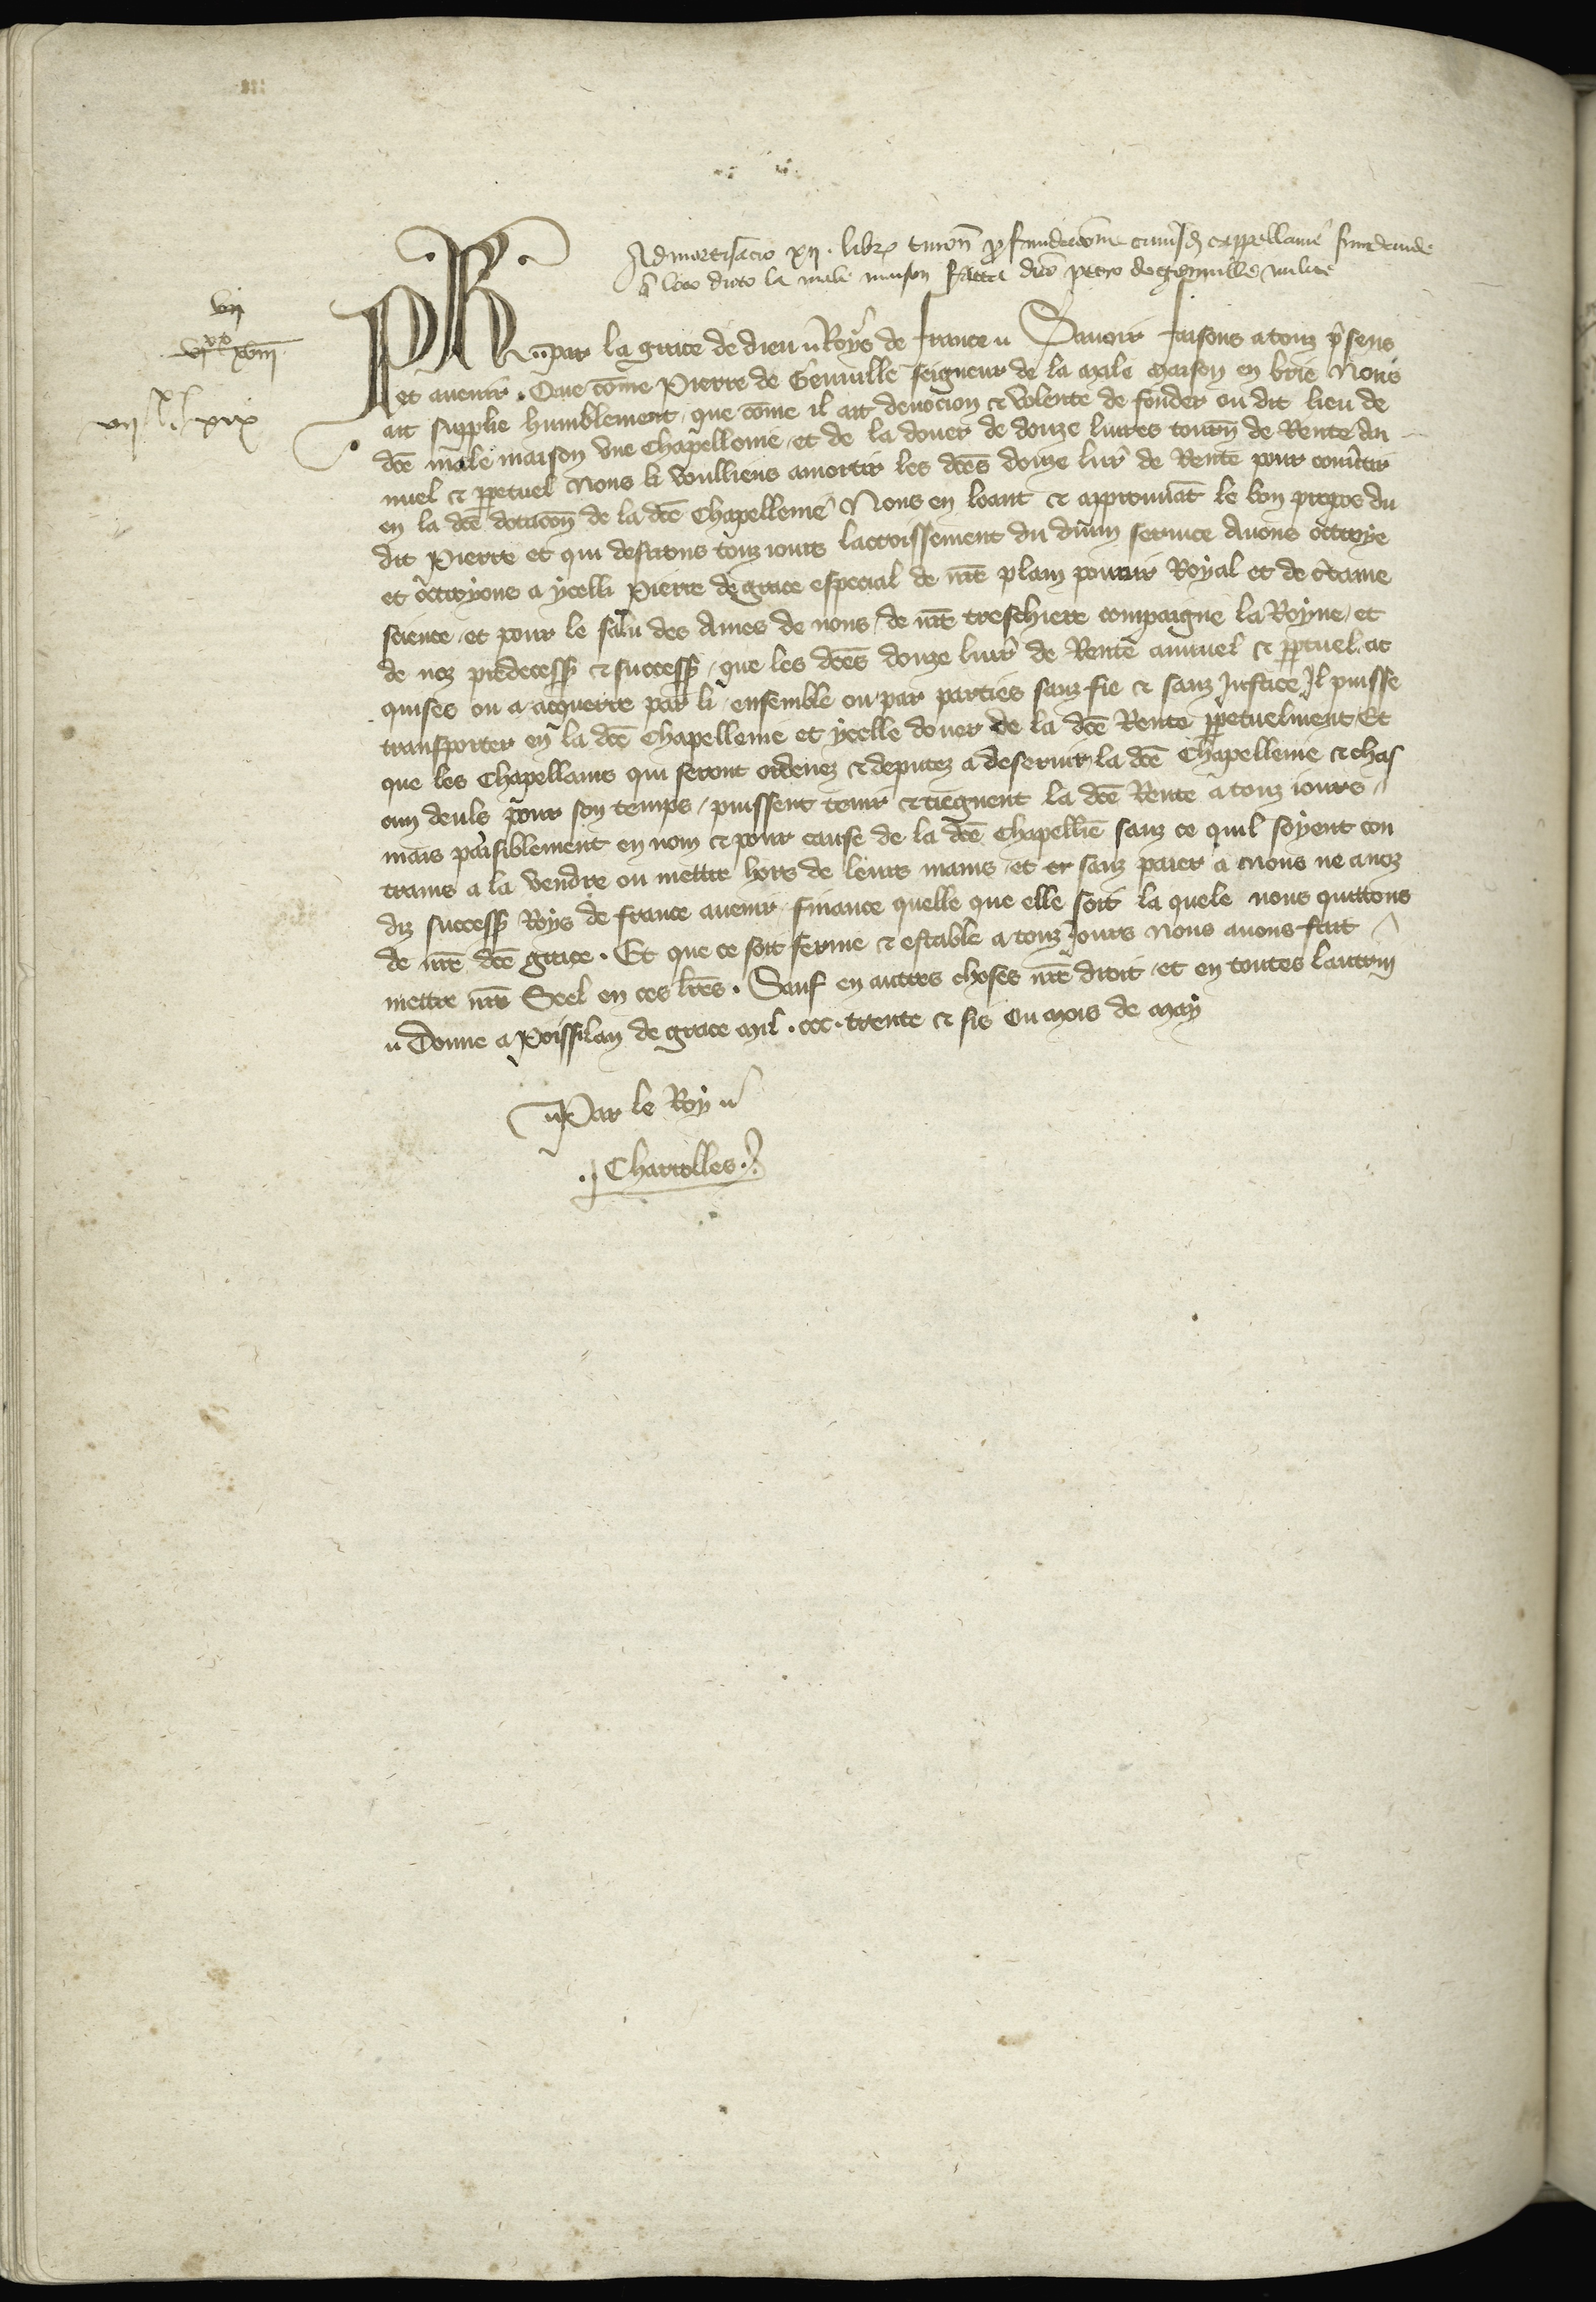 Admortisacio xii. libr turon pro fundacione cuiusd cappellanie fundande
in loco dicto la male maison facta dno petro de genville milite
vii
vi xx xviii
vii xx xix
Ph. par la grace de dieu Roys de france Savoir faisons a touz presens
et avenir. Que come Pierre de Genville seigneur de la Male Maison en brie Nous
ait supplie humblement que come il ait devocion et volente de fonder ou dit lieu de
dce male maison une Chapellenie et de la douer de douze livres tourn de Rente an
nuel et ppetuel Nous li voulliens amortir les dces douze livr de Rente pour convtir
en la dce dotacon de la dce Chapellenie Nous en loant et approuvat le bon propos du
dit Pierre et qui desirons touz iours lacroissement du divin service Avons octroye
et octroyons a ycelli Pierre de grace especial de nre plain pouvoir Royal et de ctaine
science et pour le salu des Ames de nous de nre treschiere compaigne la Royne et
de noz predecess et success que les dces douze livr de Rente annuel et pptuel ac
quises ou a acquerre par li ensemble ou par parties sanz fie et sanz Justice Il puisse
transporter en la dce Chapellenie et ycelle douer de la dce Rente ppetuelment Et
que les Chapellains qui seront ordenez et deputez a deservir la dce Chapellenie et chas
cun deuls pour son temps puissent tenir et tiegnent la dce Rente a touz iours
mais paisiblement en nom et pour cause de la dce Chapellie sanz ce quil soyent con
trains a la vendre ou mettre hors de leurs mains et sanz paier a Nous ne a noz
diz success Roys de france avenir finance quelle que elle soit la quele nous quittons
de nre dce grace. Et que ce soit ferme et estable a touz Jours Nous avons fait
mettre nre Seel en ces lres. Sauf en autres choses nre droit et en toutes lautruy
Donne a Poissi lan de grace Mil. ccc. trente et sis Ou Mois de May
Par le Roy
Charrolles.